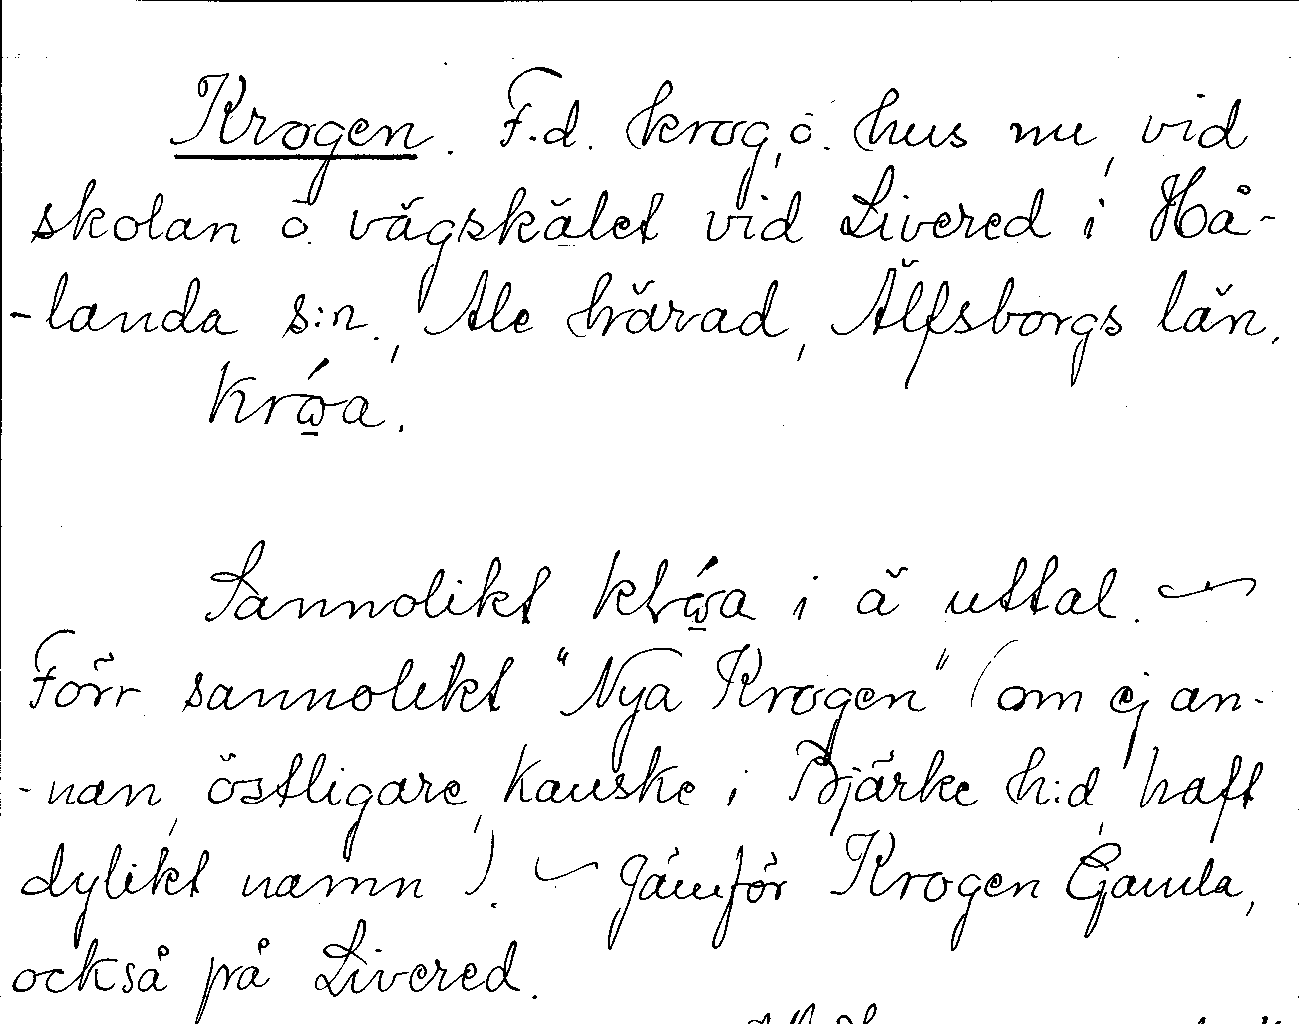 Krogen. F.d. krog, o. hus nu, vid
skolan o. vägskälet vid Livered i Hå-
-landa s:n., Ale härad, Älfsborgs län.
Sannolikt i ä uttal. ~
Förr sannolikt "Nya Krogen" (om ej an-
-nan, östligare, kanske i Bjärke h:d, haft
dylikt namn). ~ Jämför Krogen Gamla,
också på Livered.